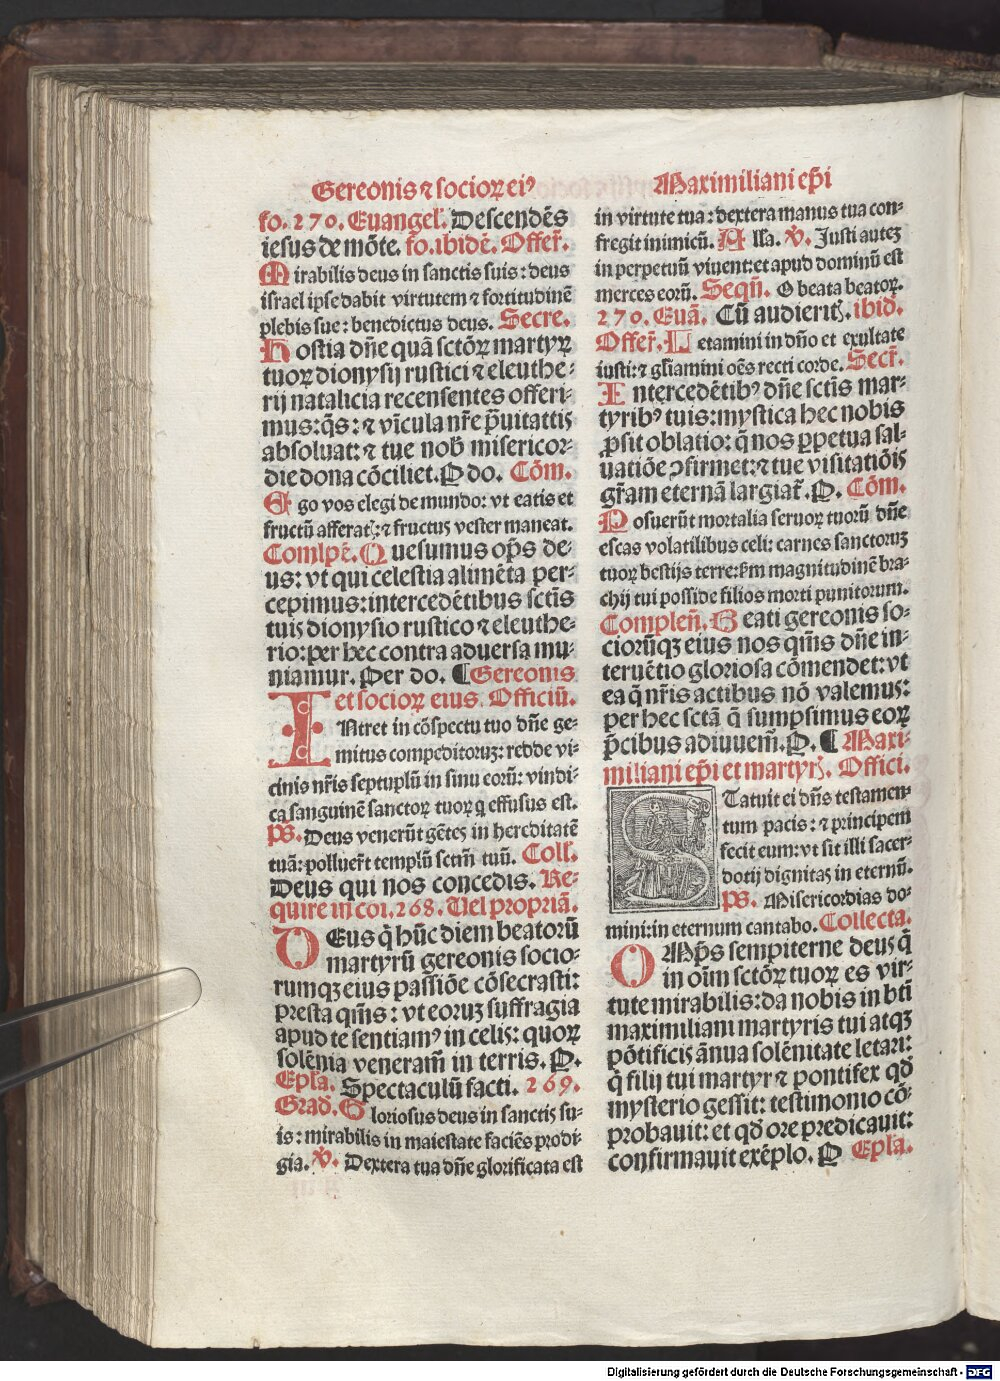 Gereonis ⁊ socioꝝ eiꝰ
fo. 270. Euangel. Descendēs
iesus de mōte. fo. ibidē. Offer̄.
Mirabilis deus in sanctis suis: deus
israel ipse dabit virtutem ⁊ fortitudinē
plebis sue: benedictus deus. Secre.
Hostia dn̄e quā sctōꝝ martyꝝ
tuoꝝ dionysij rustici ⁊ eleuthe-
rij natalicia recensentes offeri-
mus: q̄s: ⁊ vīcula nr̄e p̄uitatis
absoluat: ⁊ tue nob̄ misericor-
die dona cōciliet. P do. Cōm.
Ego vos elegi de mundo: vt eatis et
fructū afferatꝭ: ⁊ fructus vester maneat.
Comlpē. Quesumus op̄s de-
us: vt qui celestia alimēta per-
cepimus: intercedētibus sctīs
tuis dionysio rustico ⁊ eleuthe-
rio: per hec contra aduersa mu-
niamur. Per do. ¶ Gereonis
et socioꝝ eius. Officiū.
INtret in cōspectu tuo dn̄e ge-
mitus compeditoruꝫ: redde vi-
cinis nr̄is septuplū in sinu eorū: vindi-
ca sanguinē sanctoꝝ tuoꝝ q̄ effusus est.
Ps. Deus venerūt gētes in hereditatē
tuā: polluer̄t templū sctm̄ tuū. Coll.
Deus qui nos concedis. Re-
quire in coī. 268. Uel propriā.
DEus q̄ hūc diem beatorū
martyrū gereonis socio-
rumqꝫ eius passiōe cōsecrasti:
presta qm̄s: vt eoruꝫ suffragia
apud te sentiamꝰ in celis: quoꝝ
solēnia veneram̄ in terris. P.
Epl̄a. Spectaculū facti. 269.
Grad. Gloriosus deus in sanctis su-
is: mirabilis in maiestate faciēs prodi-
gia. v̄. Dextera tua dn̄e glorificata est
Maximiliani ep̄i
in virtute tua: dextera manus tua con-
fregit inimicū. Alla. v̄. Justi auteꝫ
in perpetuū viuent: et apud dominū est
merces eorū. Seqn̄. O beata beatoꝝ.
270. Euā. Cū audieritꝭ. ibid.
Offer̄. Letamini in dn̄o et exultate
iusti: ⁊ gl̄iamini oēs recti corde. Secr̄.
Intercedētibꝰ dn̄e sctīs mar-
tyribꝰ tuis: mystica hec nobis
ꝓsit oblatio: q̄ nos ꝑpetua sal-
uatiōe ↄfirmet: ⁊ tue visitatiōis
gr̄am eternā largiat̄. P. Cōm.
Posuerūt mortalia seruoꝝ tuorū dn̄e
escas volatilibus celi: carnes sanctoruꝫ
tuoꝝ bestijs terre: ẜm magnitudinē bra-
chij tui posside filios morti punitorum.
Complen̄. Beati gereonis so-
ciorūqꝫ eius nos qm̄s dn̄e in-
teruētio gloriosa cōmendet: vt
ea q̄ nr̄is actibus nō valemus:
per hec sctā q̄ sumpsimus eoꝝ
p̄cibus adiuuem̄. P. ¶ Maxi-
miliani ep̄i et martyrꝭ. Offici.
STatuit ei dn̄s testamen-
tum pacis: ⁊ principem
fecit eum: vt sit illi sacer-
dotij dignitas in eternū.
Ps. Misericordias do-
mini: in eternum cantabo. Collecta.
OMp̄s sempiterne deus q̄
in oīm sctōꝝ tuoꝝ es vir-
tute mirabilis: da nobis in btī
maximiliani martyris tui atqꝫ
pōtificis ānua solēnitate letari:
q̄ filij tui martyr ⁊ pontifex qd̄
mysterio gessit: testimonio cō-
probauit: et qd̄ ore predicauit:
confirmauit exēplo. P Epl̄a.
Digitalisierung gefördert durch die Deutsche Forschungsgemeinschaft - DFG